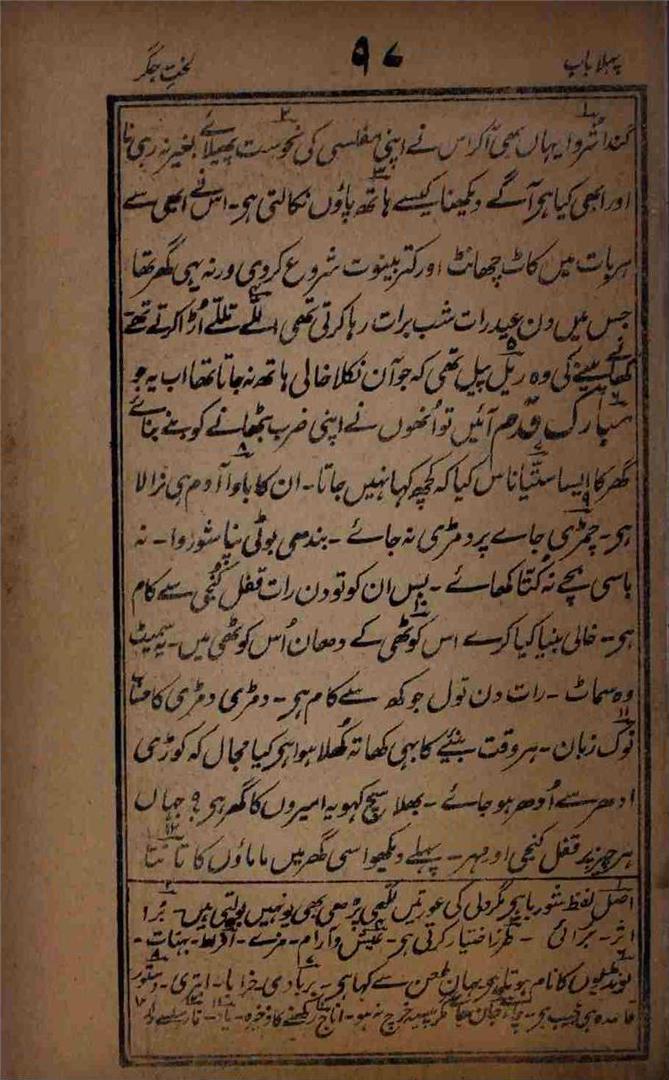 پہلا باب ۹۷ لختِ جگر
گندا شروا یہاں بھی آکر اس نے اپنی مفلسی کی نحوست پھیلائے بغیر نہ رہی نا
اور ابھی کیا ہی آگے دیکھنا کیسے ہاتھ پاؤں نکالتی ہی۔ اس نے ابھی سے
ہر بات میں کاٹ چھانٹ اور کتر بیونت شروع کردی ورنہ یہی گھر تھا
جس میں دن عید رات شب برات رہا کرتی تھی اللّے تللّے اُڑا کرتے تھے
کھانے پینے کی وہ ریل پیل تھی کہ جو آن نکلا خالی ہاتھ نہ جاتا تھا اب یہ جو
مبارک قدم آئیں تو اُنھوں نے اپنی ضرب بٹھانے کو بنے بنائے
گھر کا ایسا ستیاناس کیا کہ کچھ کہا نہیں جاتا۔ ان کا باوا آدم ہی نرالا
ہی۔ چمڑی جاے پر دمڑی نہ جائے۔ بندھی بوٹی نپا شوروا۔ نہ
باسی بچے نہ کُتا کھائے۔ بس ان کو تو دن رات قفل کُنجی سے کام
ہی۔ خالی بنیا کیا کرے اس کوٹھی کے دھان اُس کوٹھی میں۔ یہ سمیٹ
وہ سماٹ۔ رات دن تول جوکھ سے کام ہی۔ دمڑی دمڑی کا حساب
نوک زبان۔ ہر وقت بنئے کا بہی کھاتہ کھلا ہوا ہی کیا مجال کہ کوڑی
ادھر سے اُدھر ہو جائے۔ بھلا سچ کہو یہ امیروں کا گھر ہی؟ جہاں
ہر چیز پر قفل کنجی اور مہر۔ پہلے دیکھو اسی گھر میں ماماؤں کا تانتا
اصل لفظ شوربا ہی مگر دلی کی عورتیں لکھی پڑھی بھی یونہیں بولتی ہیں۔ بُرا
اثر۔ برائی۔ طرز اختیار کرتی ہی۔ عیش و آرام۔ مزے۔ افراط۔ بہتات۔
لونڈیوں کا نام ہوتا ہی یہاں طعن سے کہا ہی۔ بربادی۔ خرابا۔ ابتری۔ دستور
قاعدہ ہی عجیب ہی۔ چاہے جان جائے مگر پیسہ خرچ نہ ہو۔ اناج رکھنے کا ذخیرہ۔ یاد۔